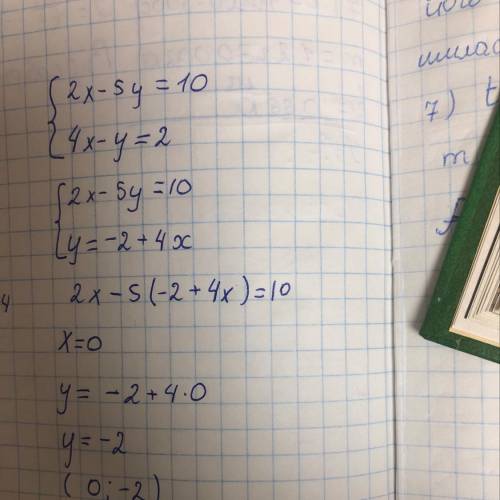 { 2x-5y=10
{ 4x-y=2
{ 2x-5y=10
{ y=-2+4x
2x-5(-2+4x)=10
x=0
y=-2+4·0
y=-2
(0;-2)
7) t
m